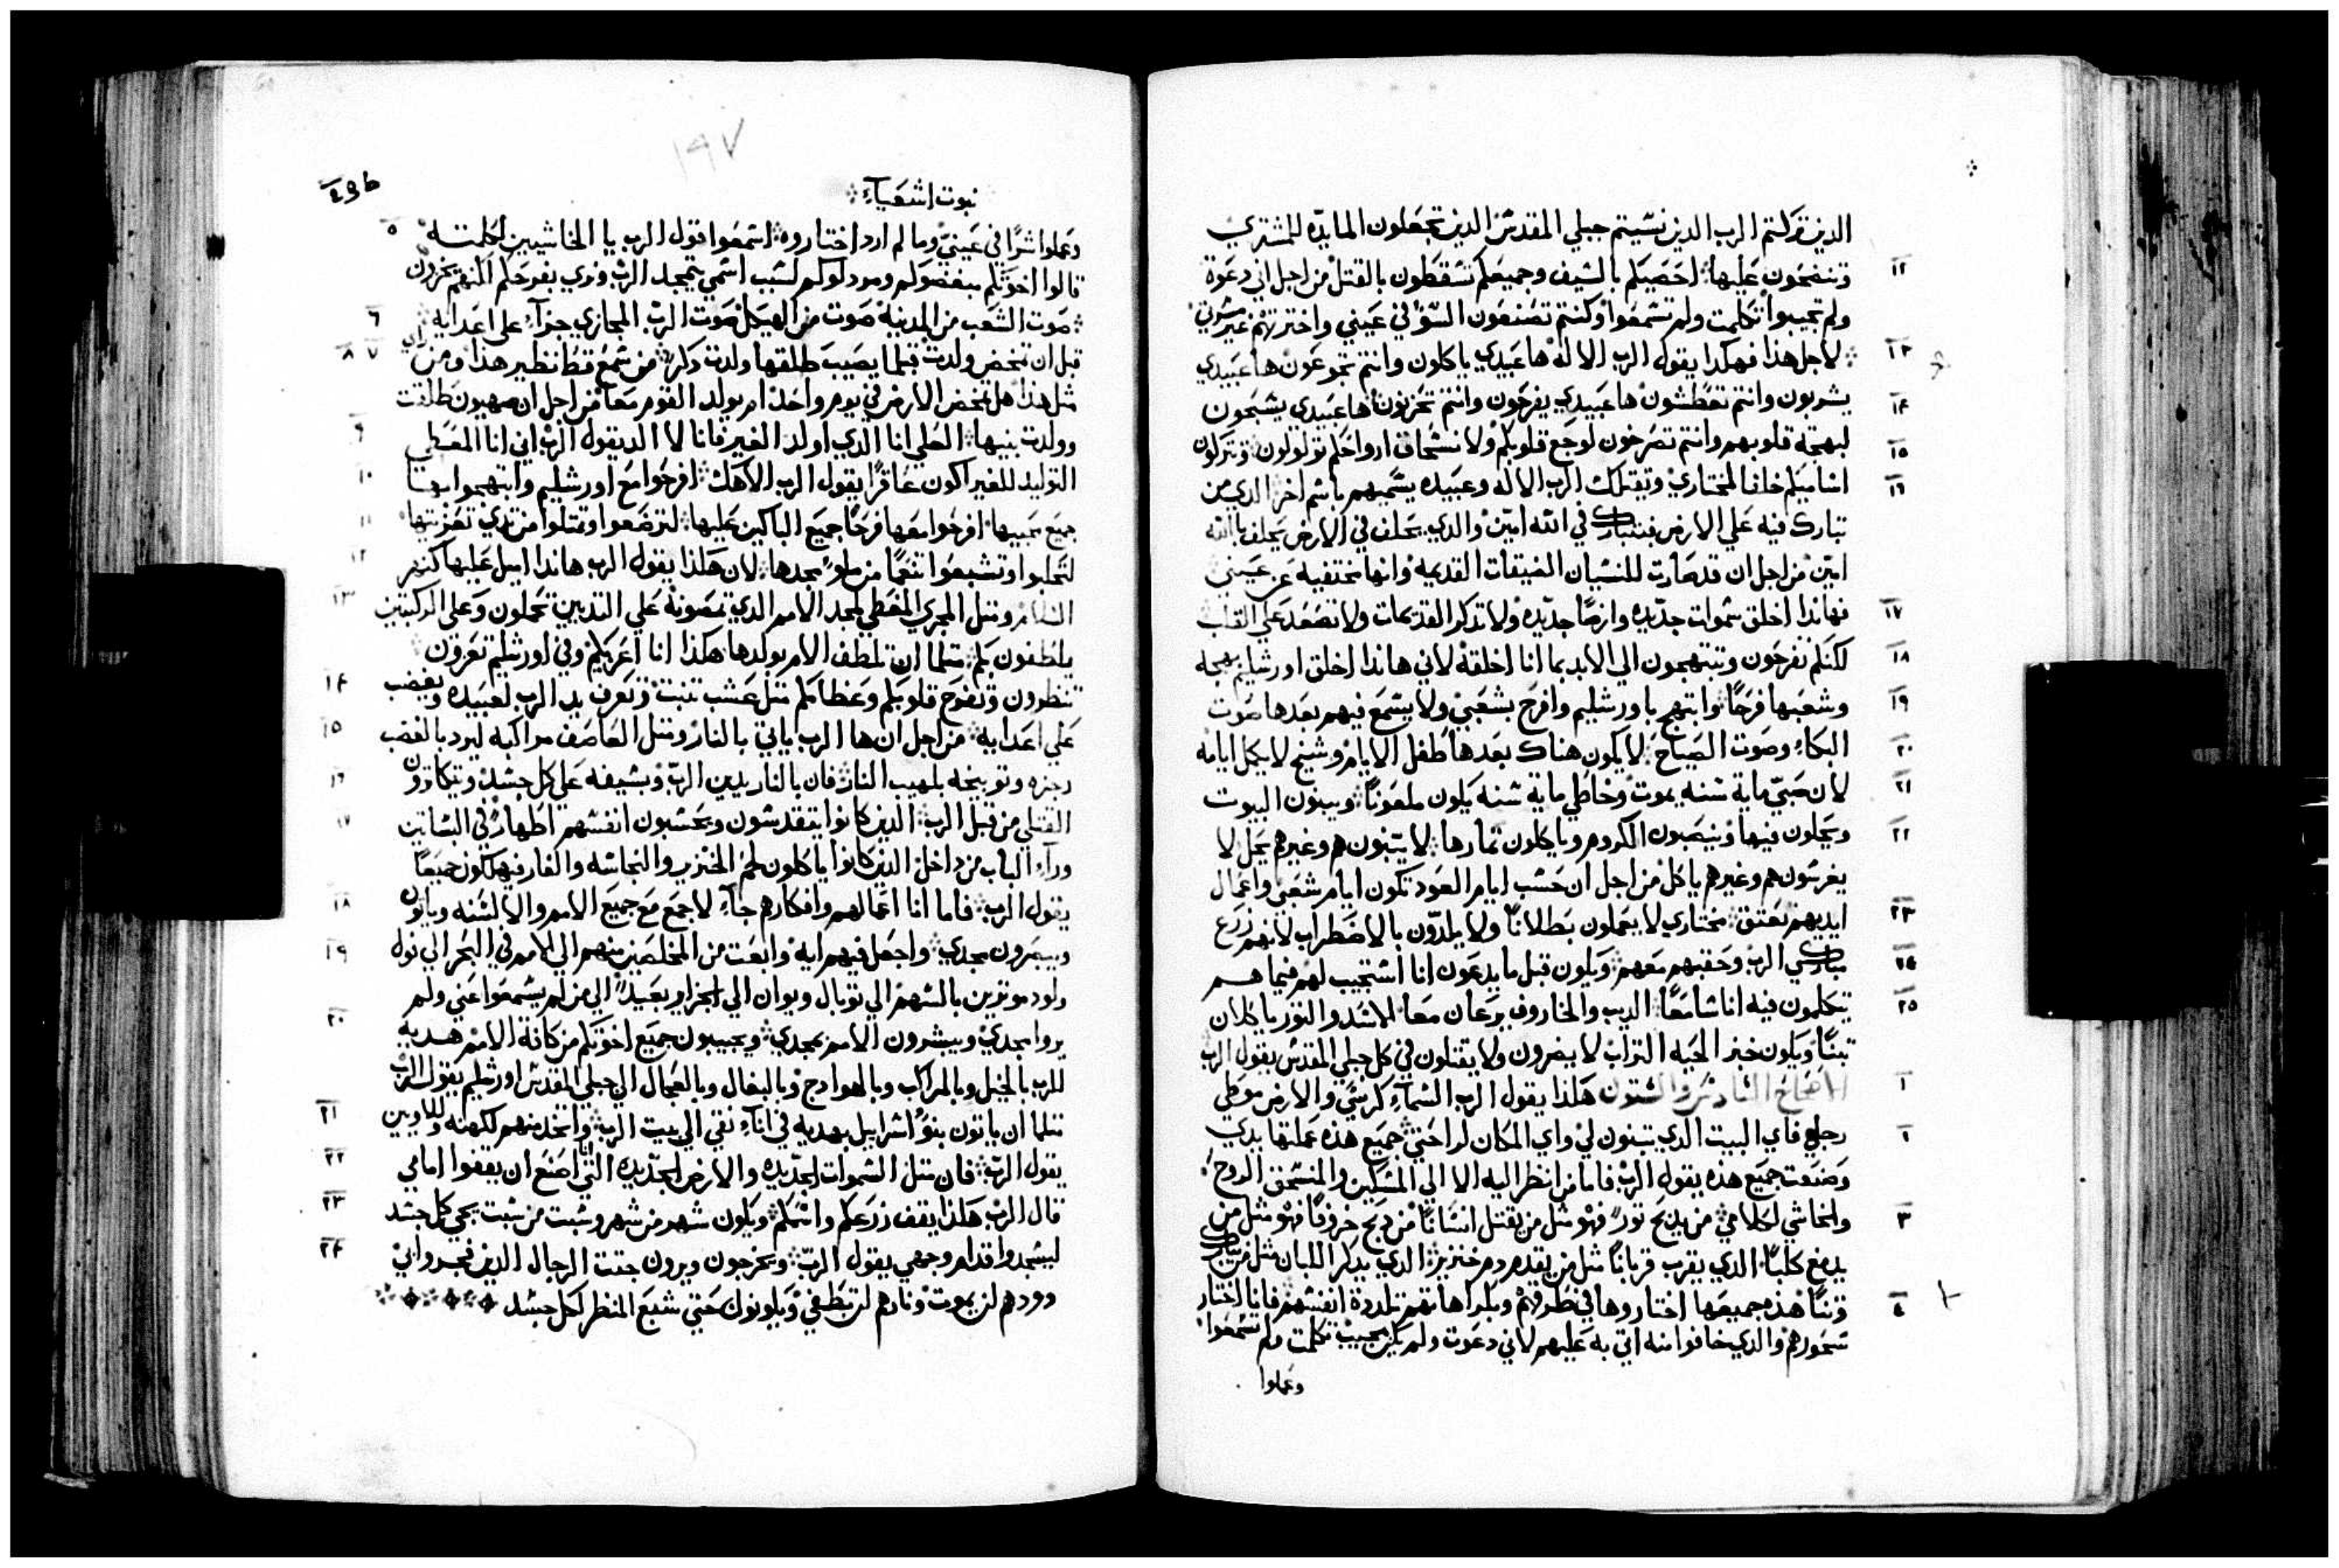 الذين تركتم الرب الذين نسيتم جبلي المقدس الذين تجعلون المايده للمشتري
١٢ وتنضحون عليها احصيكم بالسيف وجميعكم تسقطون بالقتل من اجل اني دعوة
ولم تجيبوا تكلمت ولم تسمعوا وكنتم تصنعون السؤ في عيني واخترتم غير مسرتي
١٣ لاجل هذا فهكذا يقول الرب الاله ها عبيدي ياكلون وانتم تجوعون ها عبيدي
١٤ يشربون وانتم تعطشون ها عبيدي يفرحون وانتم تخزون ها عبيدي يسبحون
١٥ لبهجة قلوبهم وانتم تصرخون لوجع قلوبكم ولانسحاق ارواحكم تولولون وتتركون
١٦ اساميكم حلفا لمختاري ويقتلك الرب الاله وعبيده يسميهم باسم اخر الذي من
تبارك فيه على الارض فيتبارك في الله امين والذي يحلف في الارض يحلف بالله
امين من اجل ان قد صارت للنسيان الضيقات القديمه وانها مختفيه عن عيني
١٧ فهانذا اخلق سموات جديده وارضا جديده ولا تذكر القديمات ولا تصعد علي القلب
١٨ لكنكم تفرحون وتبتهجون الي الابد بما انا اخلقه لاني هاندا اخلق اورشليم بهجه
١٩ وشعبها فرحا وابتهج باورشليم وافرح بشعبي ولا يسمع فيهم بعدها صوت
٢٠ البكاء وصوت الصياح لا يكون هناك بعدها طفل الايام وشيخ لا يكمل ايامه
٢١ لان صبي ماية سنه يموت وخاطي ماية سنه يكون ملعونا ويبنون البيوت
٢٢ ويحلون فيها وينصبون الكروم وياكلون ثمارها لا يبنون هم وغيرهم يحل لا
يغرسون هم وغيرهم ياكل من اجل ان حسب ايام العود تكون ايام شعبي واعمال
٢٣ ايديهم تعتق مختاري لا يعملون بطلانا ولا يلدون بالاضطراب لانهم زرع
٢٤ مباركي الرب وحقبهم معهم ويكون قبل ما يدعون انا استجيب لهم فيما هم
٢٥ يتكلمون فيه انا سامعا الديب والخاروف يرعان معا الاسد والثور ياكلان
تبنا ويكون خبز الحيه التراب لا يضرون ولا يقتلون في كل جبلي المقدس يقول الرب
١ الاصحاح السادس والستون هكذا يقول الرب السماء كرسي والارض موطي
٢ رجلي فاي البيت الذي تبنون لي واي المكان لراحتي جميع هذه عملتها يدي
وصنعت جميع هذه يقول الرب فاما من انظر اليه الا الي المسكين والمنسحق الروح
٣ والخاشي لكلامي من يدبح تور فهو مثل من يقتل انسانا من دبح خروفا فهو مثل من
يدمغ كلبا الذي يقرب قربانا مثل من يقدم دم خنزير الذي يدكر اللبان مثل من يبارك
٤ وتنا هذه جميعها اختاروها في طرقهم وبكراهاتهم تلددة انفسهم فانا اختار
سخورهم والذي خافوا منه اتي به عليهم لاني دعوت ولم يكن مجيب تكلمت ولم تسمعوا
وعملوا
١٩٧
نبوت اشعياء
٥ وعملوا شرا في عيني وما لم ارد اختاروه اسمعوا قول الرب يا الخاشيين لكلمته
قالوا اخوتكم مبغضوكم ومردلوكم لسبب اسمي يتمجد الرب ونري بفرحكم لكنهم يخزون
٦ صوت الشعب من المدينه صوت من الهيكل صوت الرب المجازي جزاء على اعدايه
٧ ٨ قبل ان تمخض ولدت قبلما يصيب طلقها ولدت دكر من سمع قط نظير هذا ومن راي
مثل هذا هل تمخض الارض في يوم واحد او يولد القوم معا من اجل ان صهيون طلقت
٩ وولدت بنيها العلي انا الذي اولد الغير فانا لا الد يقول الرب اني انا المعطي
١٠ التوليد للغير اكون عاقرا يقول الرب الاهك افرحوا مع اورشليم وابتهجوا بها
١١ جميع محبيها افرحوا معها فرحا جميع الباكين عليها لترضعوا وتمتلوا من تدي تعزيتها
١٢ لتحلبوا وتشبعوا تنعما من ملو مجدها لان هكذا يقول الرب هاندا اميل عليها كنهر
١٣ السلام ومثل المجري المغطي لمجد الامم الذي تمصونه علي التديين تحملون وعلى الركبتين
يلطفون بكم مثلما ان تلطف الام بولدها هكذا انا اعزيكم وفي اورشليم تعزون
١٤ تنظرون وتفرح قلوبكم وعظامكم مثل عشب تنبت وتعرف يد الرب لعبيده ويغضب
١٥ على اعدايه من اجل ان ها الرب ياتي بالنار ومثل العاصف مراكبه ليرد بالغضب
١٦ رجزه وتوبيخه بلهيب النار فان بالنار يدين الرب وبسيفه على كل جسد ويتكاترون
١٧ القتلي من قبل الرب الذين كانوا يتقدسون ويحسبون انفسهم اطهار في البساتين
وراء الباب من داخل الذين كانوا ياكلون لحم الخنزير والنجاسه والفار فيهلكون جميعا
١٨ يقول الرب فاما انا اعمالهم وافكارهم جاء لاجمع مع جميع الامم والالسنه وياتون
١٩ ويبصرون مجدي واجعل فيهم ايه وابعت من المخلصين منهم الي الامم في البحر الي
ولود موترين بالسهم الي توبال ويوان الي الجزاير بعيدا الي من لم يسمعوا عني ولم
٢٠ يروا مجدي ويبشرون الامم بمجدي ويجيبون جميع اخوتكم من كافة الامم هديه
للرب بالخيل وبالمراكب وبالهوادج وبالبغال وبالعجال الي جبلي المقدس اورشليم يقول الرب
٢١ مثلما ان ياتون بنو اسراييل بهديه في اناء نقي الي بيت الرب واتخد منهم لكهنه وللاويين
٢٢ يقول الرب فان مثل السموات الجديده والارض الجديده التي اصنع ان يقفوا امامي
٢٣ قال الرب هكذا يقف زرعكم واسمكم ويكون شهر من شهر وسبت من سبت يجي كل جسد
٢٤ ليسجدوا قدام وجهي يقول الرب ويخرجون ويرون جتت الرجال الذين فجروا بي
دودهم لن يموت ونارهم لن تطفي ويكونون حتي شبع المنظر لكل جسد